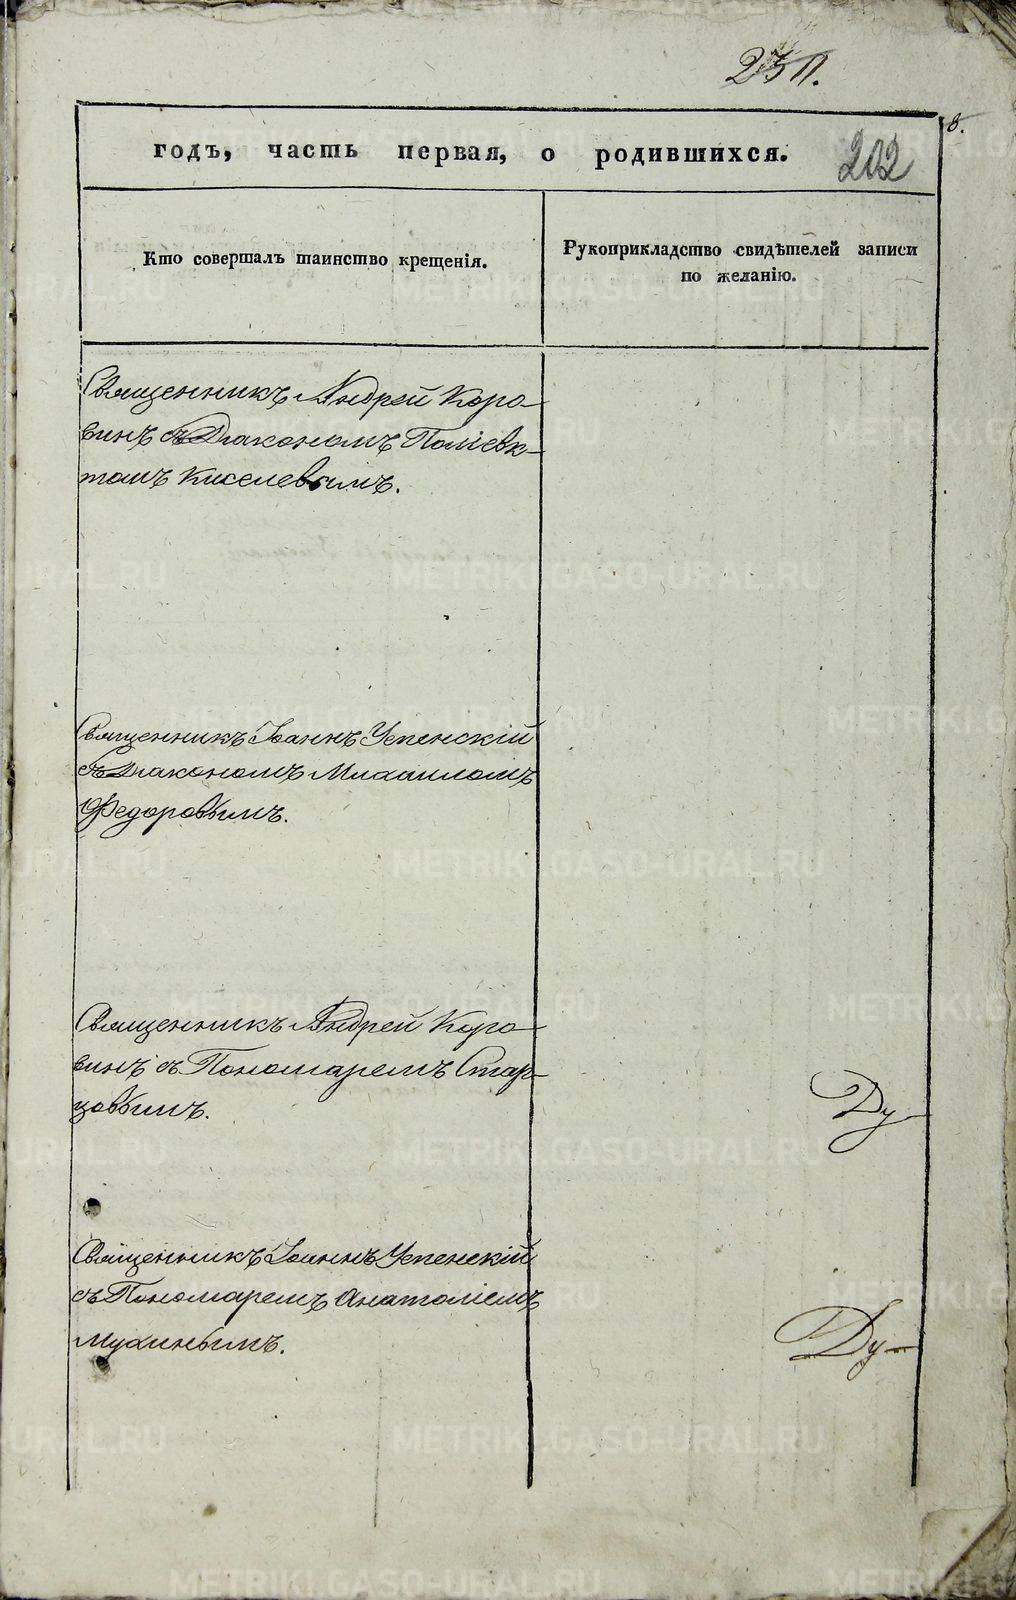 годъ, часть первая, о родившихся.
202
Кто совершалъ таинство крещенія.
Рукоприкладство свидѣтелей записи
по желанію.
Священникъ Андрей Коро-
винъ съ Діакономъ Поліевк-
томъ Киселевымъ.
Священникъ Іоаннъ Успенскій
съ Діакономъ Михаиломъ
Федоровымъ.
Священникъ Андрей Коро-
винъ съ Пономаремъ Стар-
цовымъ.
Ду-
Священникъ Іоаннъ Успенскій
съ Пономаремъ Анатоліемъ
Мухинымъ.
Ду-
METRIKI.GASO-URAL.RU